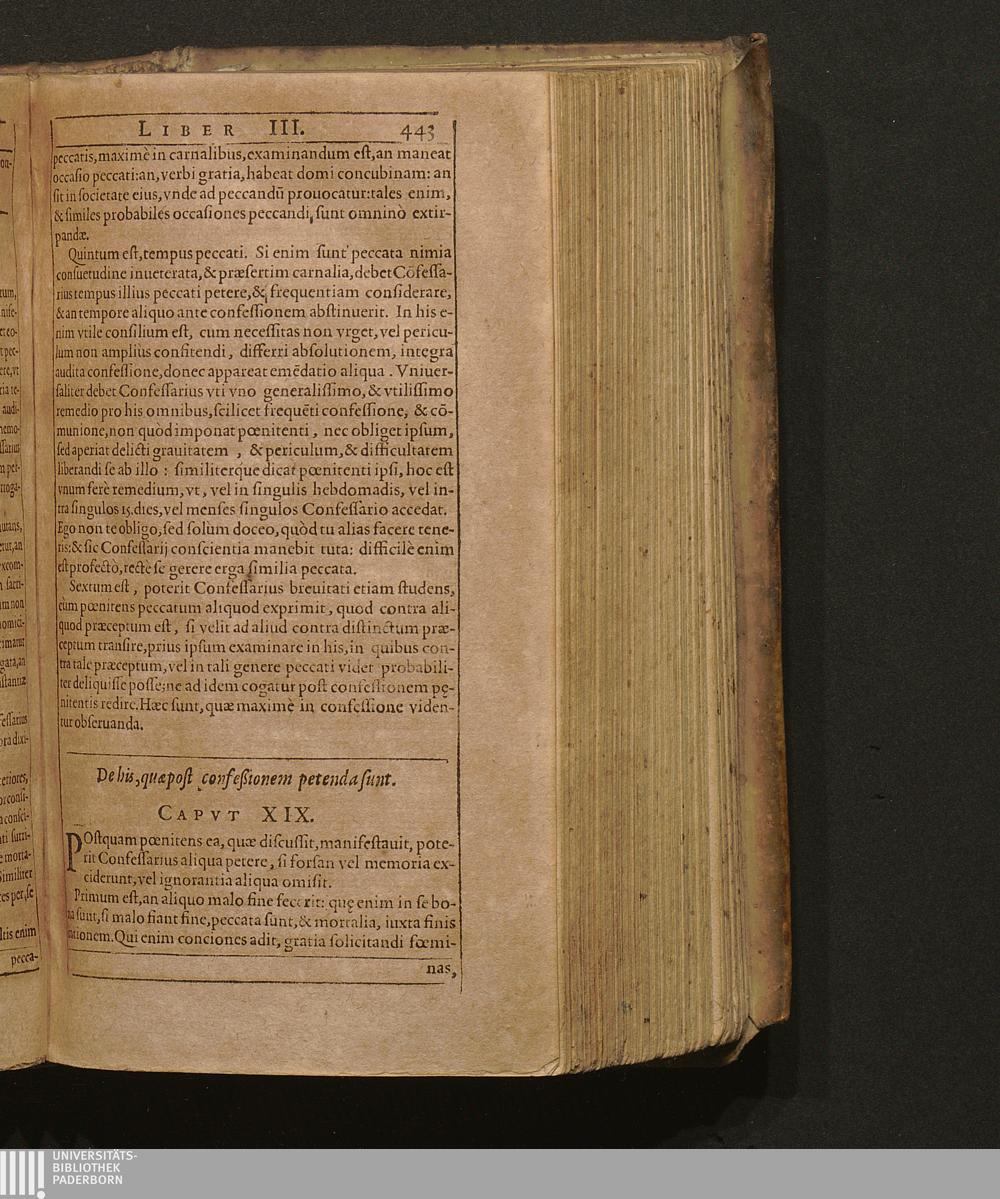 LIBER III. 443
peccatis,maximè in carnalibus,examinandum eſt,an maneat
occaſio peccati:an,verbi gratia,habeat domi concubinam: an
ſit in ſocietate eius,vnde ad peccandū prouocatur:tales enim,
& ſimiles probabiles occaſiones peccandi, ſunt omninò extir-
pandæ.
Quintum eſt,tempus peccati. Si enim ſunt peccata nimia
conſuetudine inueterata,& præſertim carnalia,debet Cōfeſſa-
rius tempus illius peccati petere,& frequentiam conſiderare,
& an tempore aliquo ante confeſſionem abſtinuerit. In his e-
nim vtile conſilium eſt, cum neceſſitas non vrget, vel pericu-
lum non amplius confitendi, differri abſolutionem, integra
audita confeſſione,donec appareat emēdatio aliqua. Vniuer-
ſaliter debet Confeſſarius vti vno generaliſſimo, & vtiliſſimo
remedio pro his omnibus,ſcilicet frequēti confeſſione, & cō-
munione,non quòd imponat pœnitenti, nec obliget ipſum,
ſed aperiat delicti grauitatem, & periculum,& difficultatem
liberandi ſe ab illo: ſimiliterque dicat pœnitenti ipſi, hoc eſt
vnum ferè remedium, vt, vel in ſingulis hebdomadis, vel in-
tra ſingulos 15.dies,vel menſes ſingulos Confeſſario accedat.
Ego non te obligo,ſed ſolùm doceo,quòd tu alias facere tene-
ris:& ſic Confeſſarij conſcientia manebit tuta: difficilè enim
eſt profectò,rectè ſe gerere erga ſimilia peccata.
Sextum eſt, poterit Confeſſarius breuitati etiam ſtudens,
cùm pœnitens peccatum aliquod exprimit, quod contra ali-
quod præceptum eſt, ſi velit ad aliud contra diſtinctum præ-
ceptum tranſire,prius ipſum examinare in his,in quibus con-
tra tale præceptum,vel in tali genere peccati videt probabili-
ter deliquiſſe poſſe;ne ad idem cogatur poſt confeſſionem pę-
nitentis redire.Hæc ſunt,quæ maximè in confeſſione viden-
tur obſeruanda.
De his, quæ poſt confeßionem petenda ſunt.
CAPVT XIX.
POſtquam pœnitens ea, quæ diſcuſſit,manifeſtauit, pote-
rit Confeſſarius aliqua petere, ſi forſan vel memoria ex-
ciderunt,vel ignorantia aliqua omiſit.
Primum eſt,an aliquo malo fine fecerit: quę enim in ſe bo-
na ſunt,ſi malo fiant fine,peccata ſunt,& mortalia, iuxta finis
rationem.Qui enim conciones adit, gratia ſolicitandi fœmi-
nas,
UNIVERSITÄTS-
BIBLIOTHEK
PADERBORN